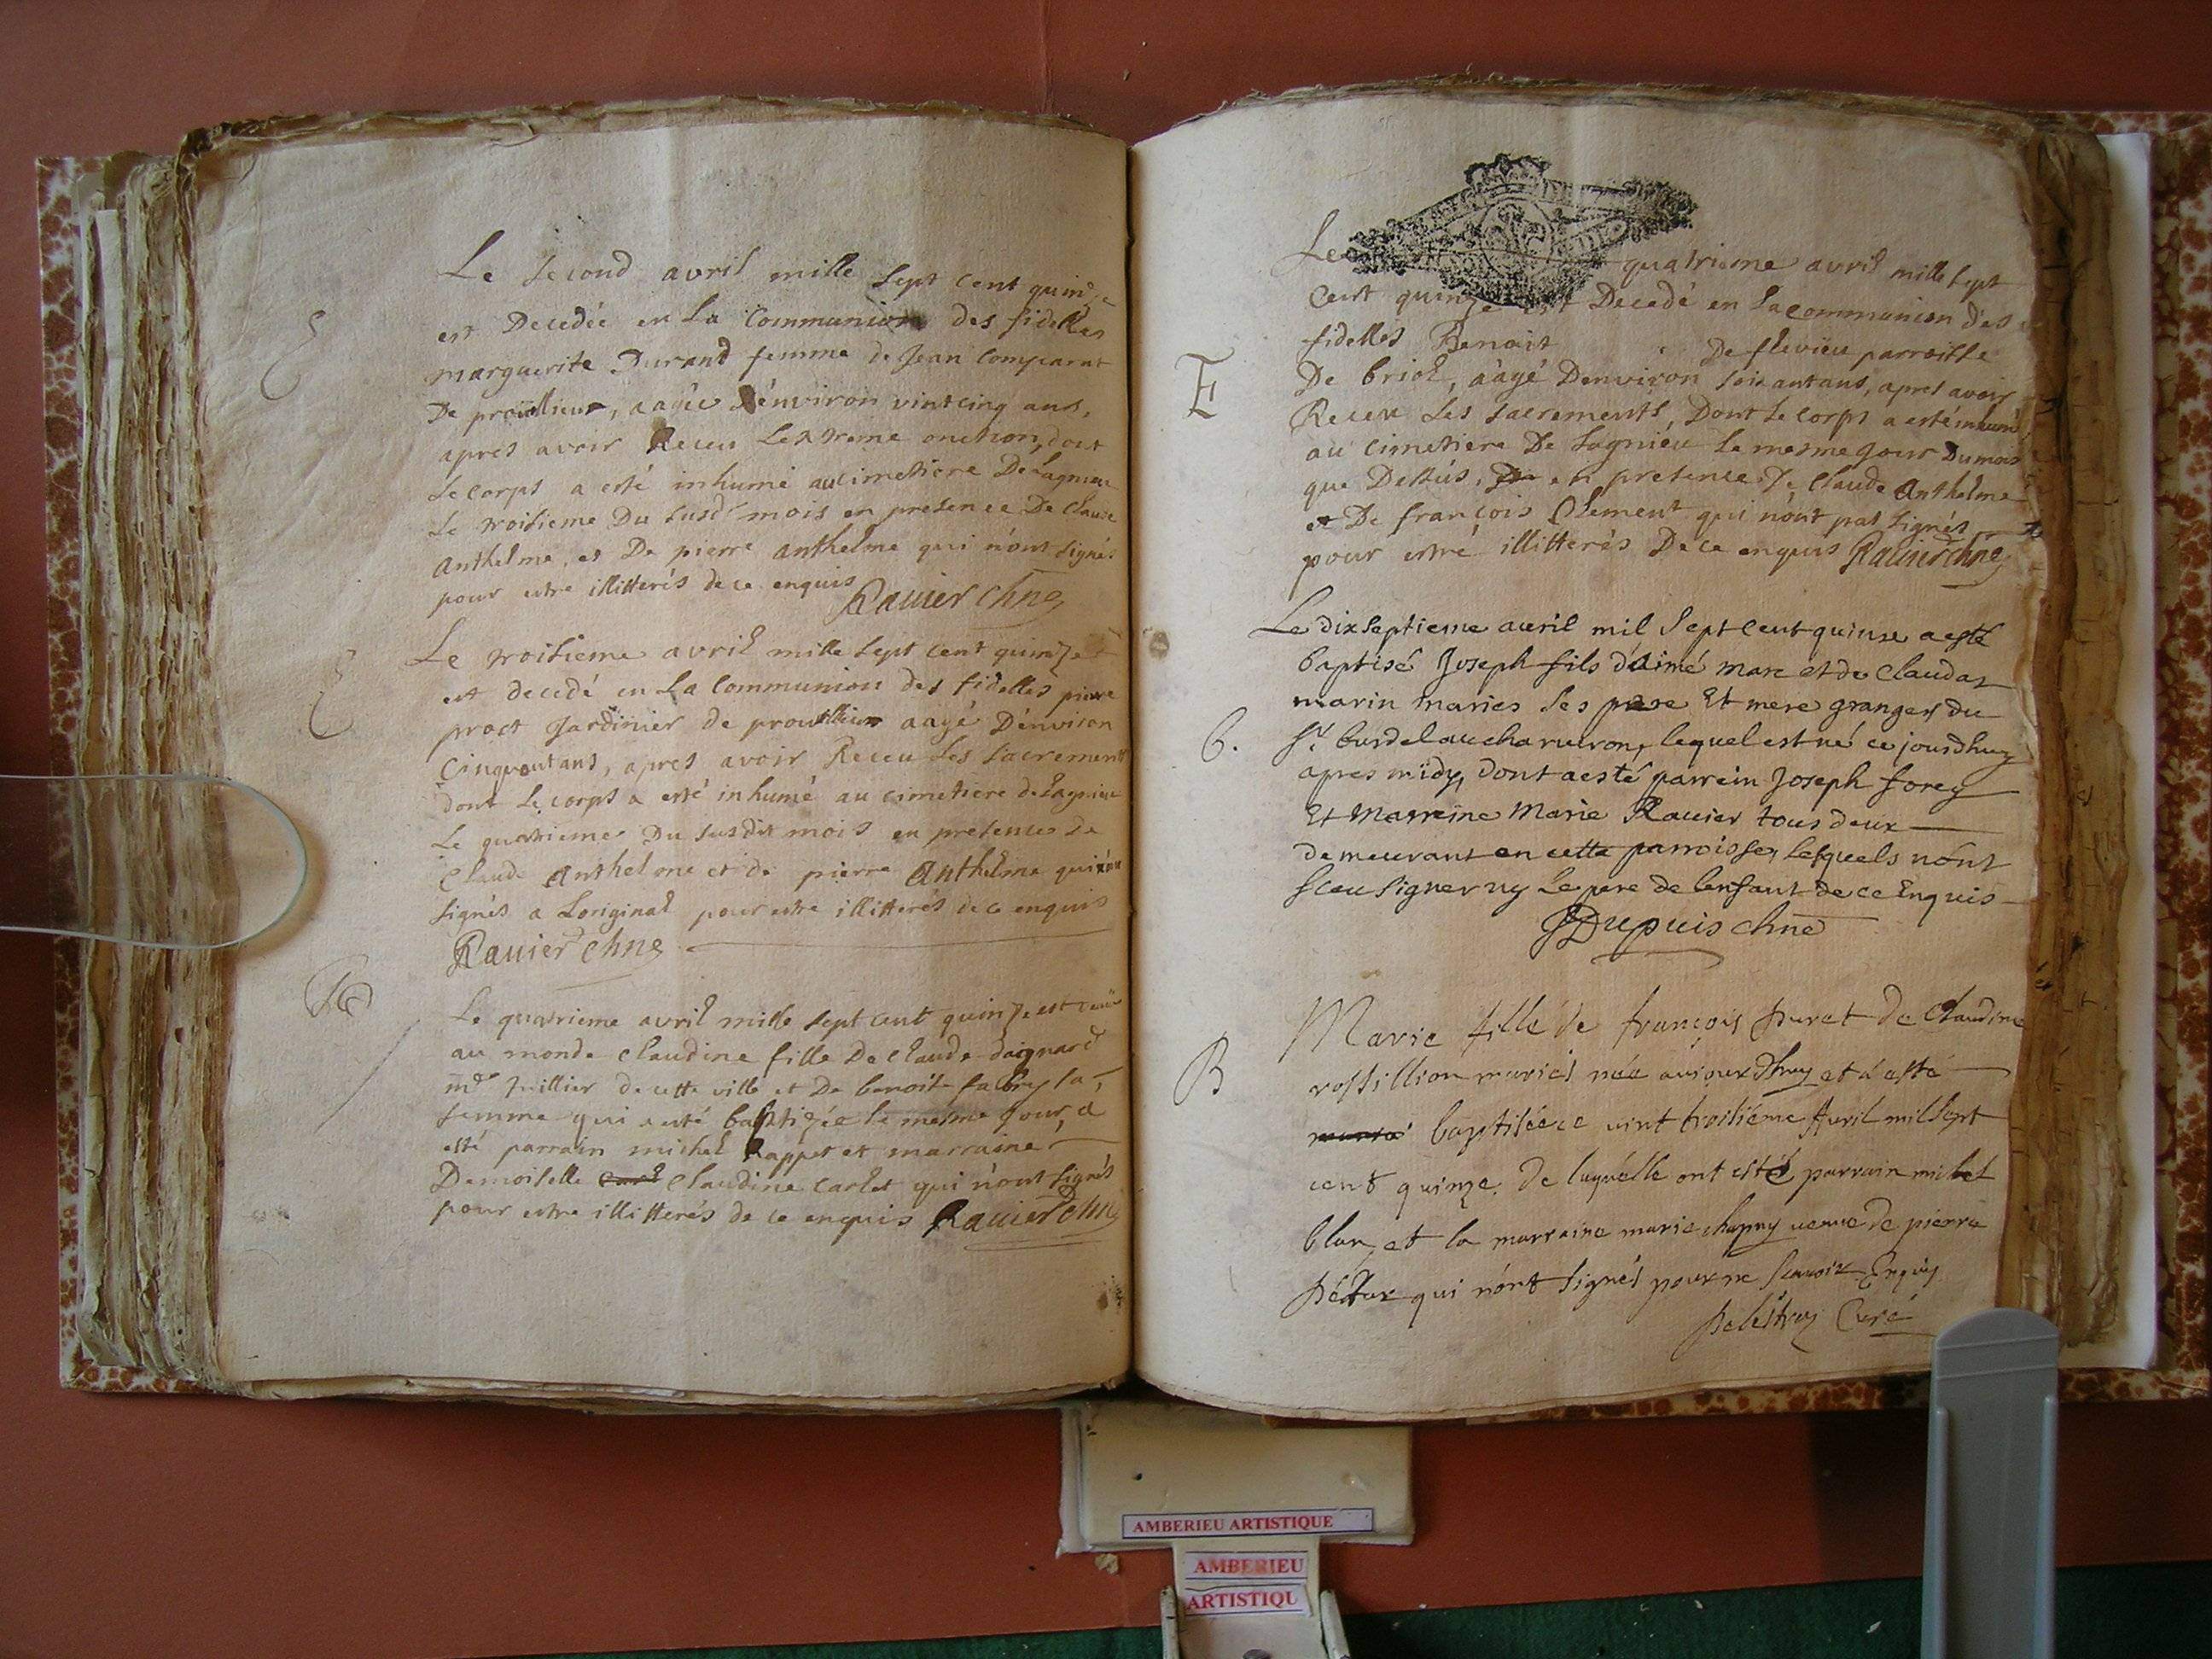 E
Le second avril mille sept cent quinze
est Decedée en La Communion des fidelles
marguerite Durand femme de Jean Comparat
De proüllieur, aagée d'énviron vintcinq ans,
apres avoir Receu Lextreme onction, dont
Le corps a esté inhumé au cimetiere De Lagnieu
Le troisieme Du susdt mois en presence De Claude
anthelme, et De pierre anthelme qui n'ont signés
pour estre illitterés de ce enquis
Ravier chne
E
Le troisieme avril mille sept cent quinze
est decedé en La Communion des fidelles pierre
proct Jardinier de proullieur aagé D'énviron
Cinquantans, apres avoir Receu Les sacrements
dont Le corps a esté inhumé au cimetiere de Lagnieu
Le quatrieme Du susdit mois en presence de
Claude Anthelme et de pierre Anthelme qui n'ont
signés a Loriginal pour estre illitterés de ce enquis
Ravier chne
Le quatrieme avril mille sept cent quinze est venüe
au monde Claudine fille De Claude
de cette ville et De benoit fabry sa
femme qui a esté baptizée le mesme Jour, a
esté parrain michel Rappet et marraine
Demoiselle Claudine Carlet qui n'ont signés
pour estre illitterés de ce enquis Ravier chne
Le quatrieme avril mille sept
Cent quinze est Decedé en La communion des
fidelles Benoit De flevieu parroisse
E
De briol, aagé Denviron soixantans, apres avoir
Receu Les sacrements, Dont Le corps a esté inhumé
au cimetiere De Lagnieu Le mesme Jour Du mois
que Dessus, en presence De Claude Anthelme
et De françois Clement qui n'ont pas signés
pour estre illitterés De ce enquis Ravier chne
Le dixseptieme auril mil sept cent quinse a esté
baptisé Joseph fils d'aimé marc et de Claudaz
marin maries ses pere Et mere granger du
B.
Sr burdel au charueiron, lequel est né ce jourdhuy
apres midy, dont a esté parrein Joseph forey
Et Marreine Marie Rauier tous deux
demeurant en cette parroisse, lesquels n'ont
sceu signer ny le pere de lenfant de ce Enquis
Dupuis chne
Marie fille de françois puret de Claudine
B
rossillion mariés née aujourdhuy et a esté
baptisée ce vint troisiéme Auril mil sept
cent quinze. De laquelle ont estés parrain michel
blan, et la marraine marie chapuy veuve de pierre
qui n'ont signés pour ne scauoir Enquis
Curé
AMBERIEU ARTISTIQUE
AMBERIEU
ARTISTIQU